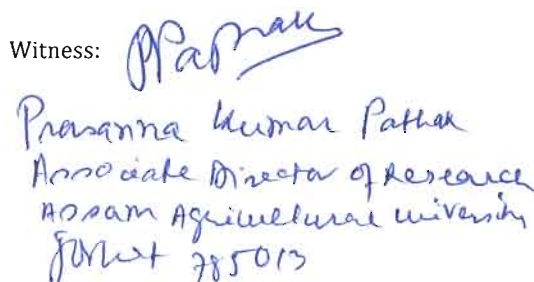 Witness: PPathak
Prasanna Kumar Pathak
Associate Director of Research
Assam Agricultural university
Jorhat 785013